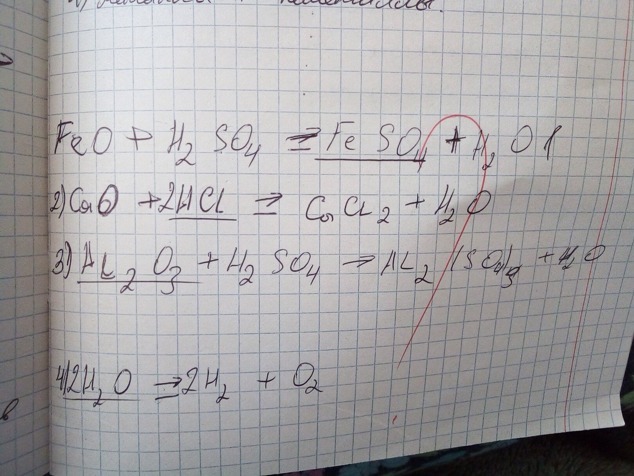 FeO + H₂SO₄ = FeSO₄ + H₂O
2) CaO + 2HCL = CaCL₂ + H₂O
3) AL₂O₃ + H₂SO₄ → AL₂(SO₄)₃ + H₂O
4) 2H₂O = 2H₂ + O₂